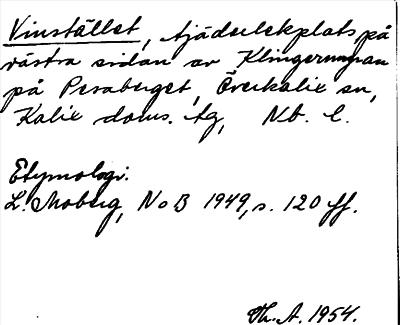 Vinstället, tjäderlekplats på
västra sidan av Klingermyran
på Perabuget, Överkalix sn,
Kalix doms. tg, Nb. l.
Etymologi:
L. Moberg, NoB 1949, s. 120 ff.
Th. A. 1954.